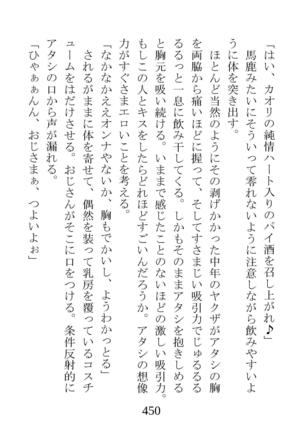 「はい、カオリの純情ハート入りのパイ酒を召し上がれ♪」
馬鹿みたいにそういって零れないように注意しながら飲みやすいよ
うに体を突き出す。
ほとんど当然のようにその剥げかかった中年のヤクザがアタシの胸
を両脇から痛いほどに握って、そしてすさまじい吸引力でじゅるる
るるっと一息に飲み干してくる。しかもそのままアタシを抱きしめる
と胸元を吸い続ける。いままで感じたことのないほどの激しい吸引力。
もしこの人とキスをしたらどれほどすごいんだろうか。アタシの想像
力がすぐさまエロいことを考える。
「なかなかええオンナやないか、胸もでかいし、ようわかっとる」
されるがままに体を寄せて、偶然を装って乳房を覆っているコスチ
ュームをはだけさせる。おじさんがそこに口をつける。条件反射的に
アタシの口から声が漏れる。
「ひゃぁぁんん、おじさまぁ、つよいよぉ」
450